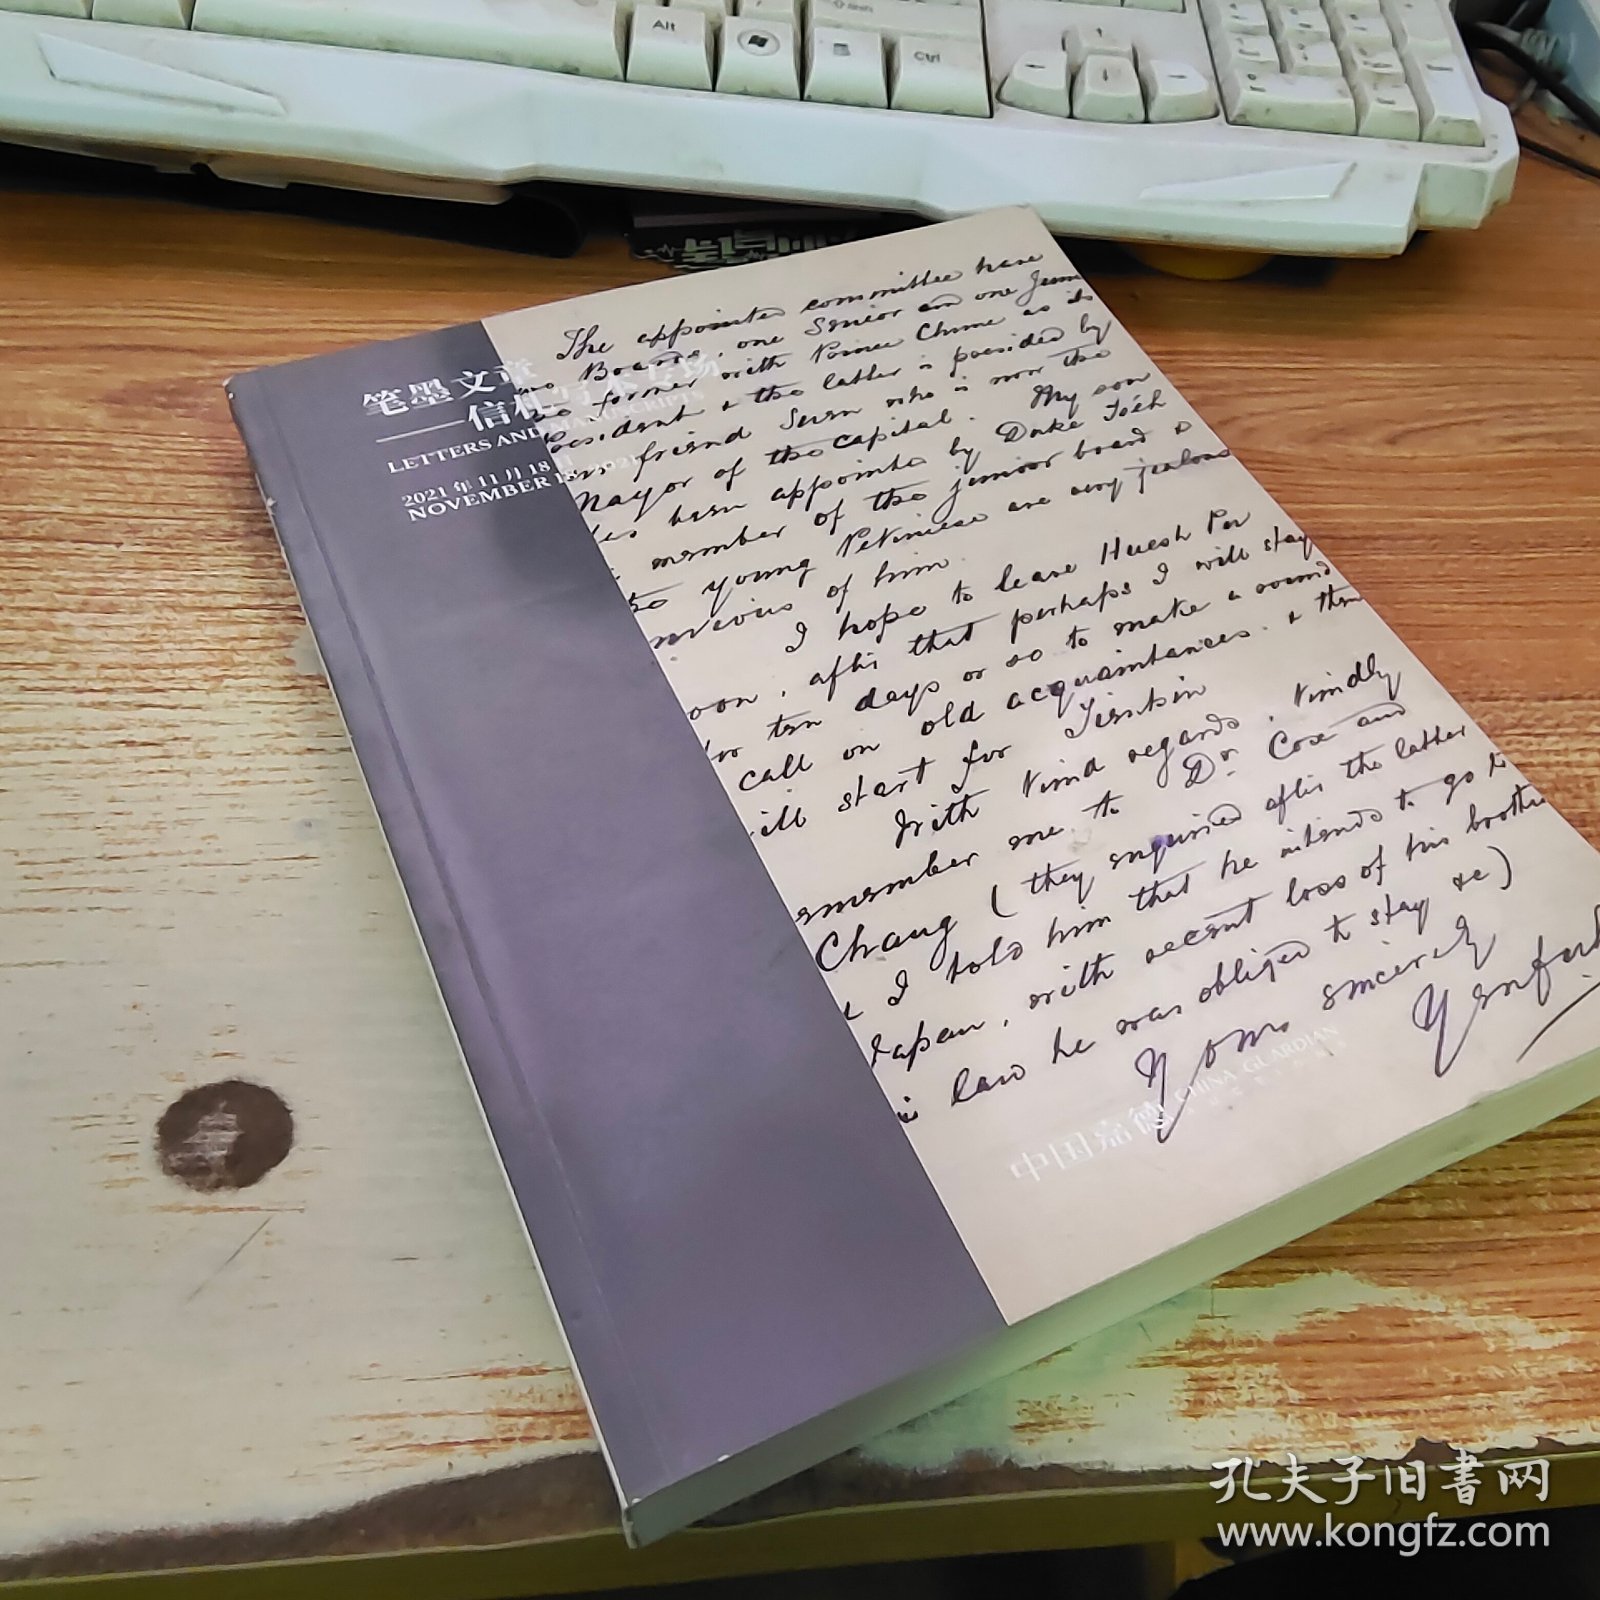 Alt
Ctrl
笔墨文章
——信札写本专场
LETTERS AND MANUSCRIPTS
2021 年 11 月 18 日
NOVEMBER 18, 2021
The appointed committee have
Boards, one Senior and one Junior
former with Prince Chune as its
president & the latter is presided by
friend Suen who is now the
Mayor of the Capital. My son
has been appointed by Duke Tseh
member of the junior board &
the young Pekinese are very jealous
envious of him.
I hope to leave Hueh Pu
soon, after that perhaps I will stay
for ten days or so to make a round
call on old acquaintances & then
will start for Tientsin
With kind regards, kindly
remember me to Dr. Cox and
Chang (they enquired after the latter
& I told him that he intends to go to
Japan, with recent loss of his brother
in law he was obliged to stay &c)
Yours sincerely
Yenfuh
中国嘉德 CHINA GUARDIAN
孔夫子旧书网
www.kongfz.com